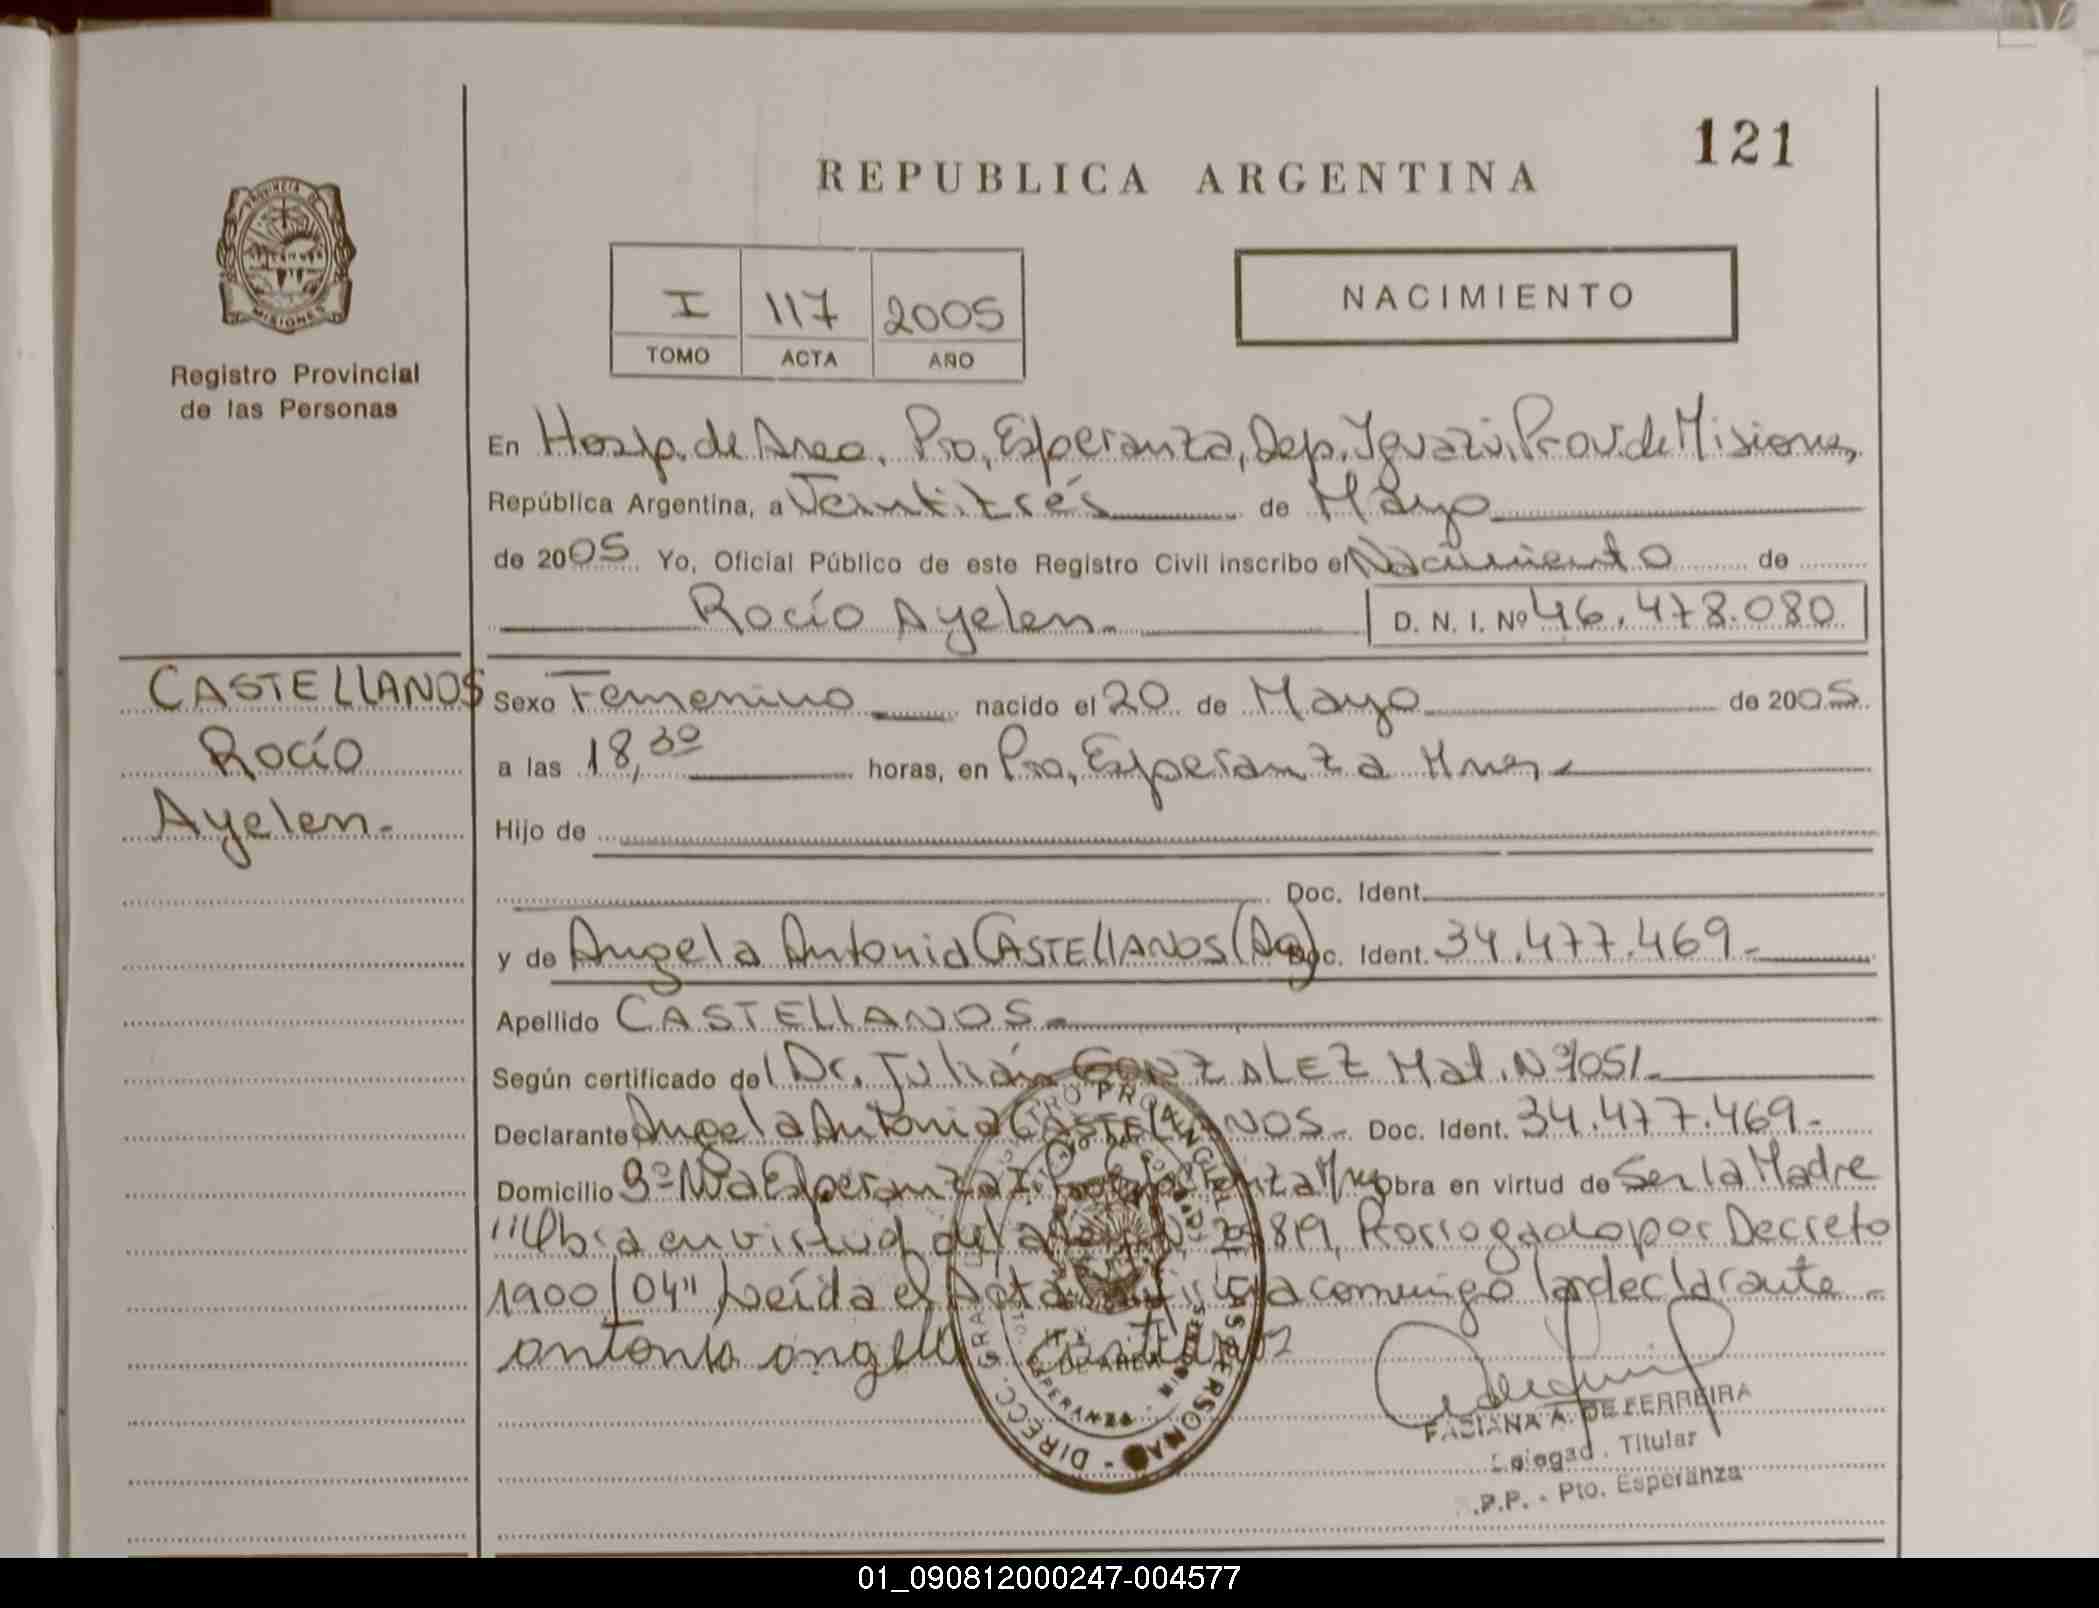 121
REPUBLICA ARGENTINA
PROVINCIA DE
MISIONES
Registro Provincial
de las Personas
I 117 2005
TOMO ACTA AÑO
NACIMIENTO
En Hosp. de Area, Pto, Esperanza, Dep. Iguazú, Prov. de Misiones,
República Argentina, a Veintitrés de Mayo
de 2005 Yo, Oficial Público de este Registro Civil inscribo el Nacimiento de
Rocío Ayelen.- D. N. I. Nº 46.478.080
CASTELLANOS
Rocío
Ayelen.-
Sexo Femenino nacido el 20 de Mayo de 2005
a las 18,30 horas, en Pto, Esperanza Mnes.-
Hijo de
Doc. Ident.
y de Angela Antonia CASTELLANOS (Ag) Doc. Ident. 34.477.469.-
Apellido CASTELLANOS.-
Según certificado del Dr. Julián GONZALEZ Mat. Nº 1051.-
Declarante Angela Antonia CASTELLANOS.- Doc. Ident. 34.477.469.-
Domicilio Bº Nva Esperanza Obra en virtud de Ser la Madre
"Obra en virtud de la 819, Prorrogado por Decreto
1900/04" Leída el Acta commigo la declarante.-
antonia angela
FABIANA A. DE FERREIRA
Delegad. Titular
.P.P. - Pto. Esperanza
01_090812000247-004577